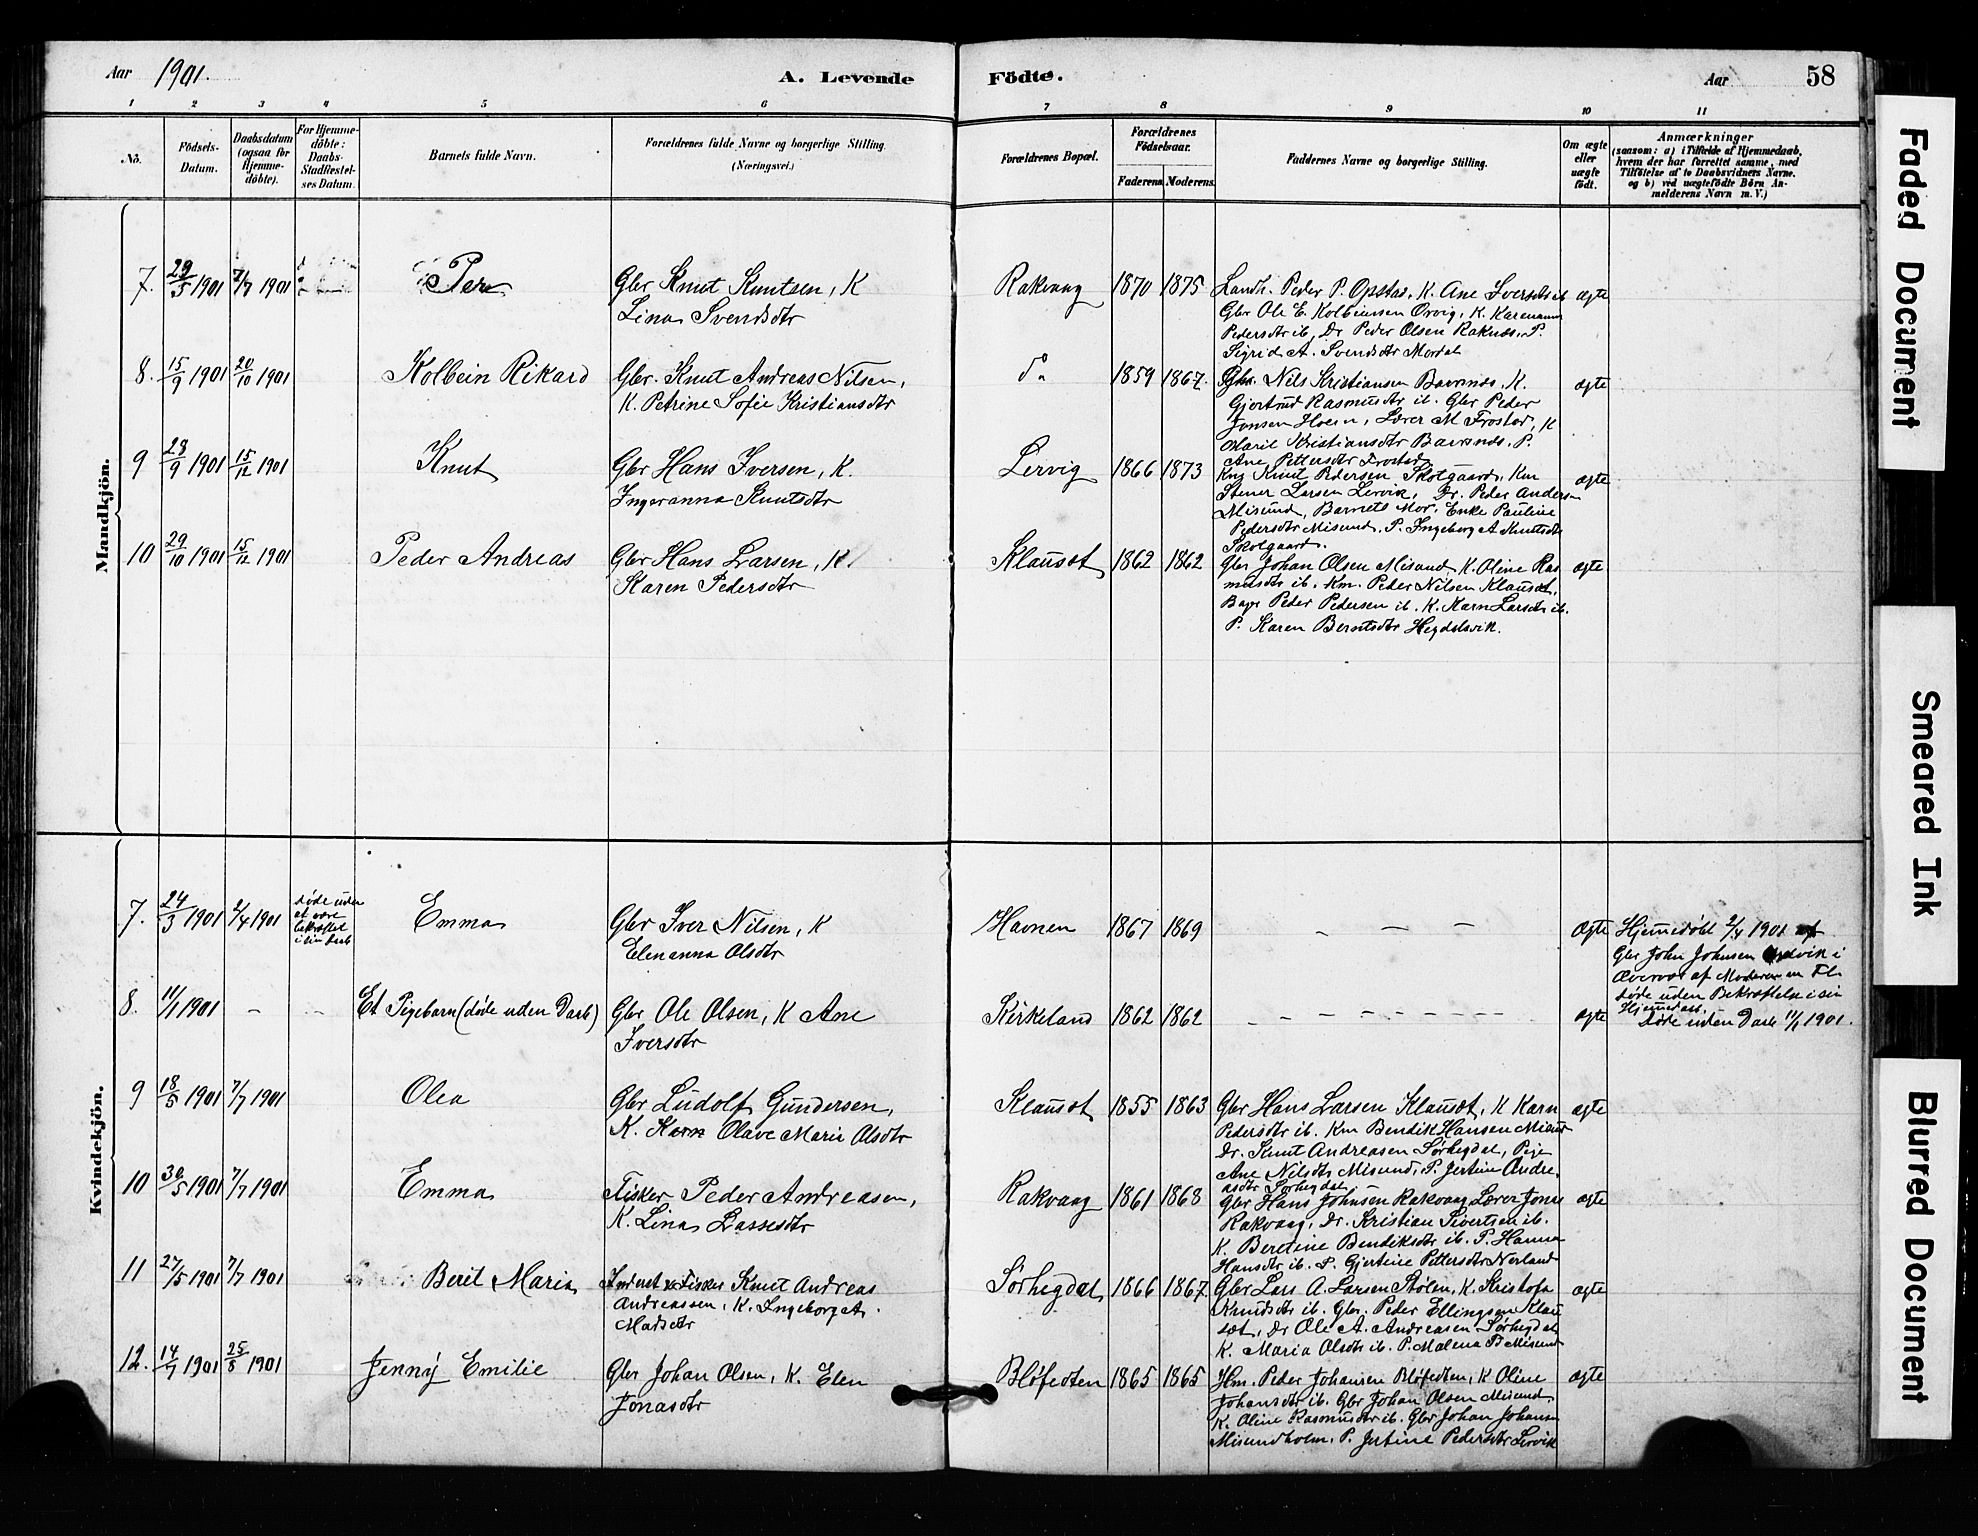 Aar 1901.
A. Levende Födte.
Aar
58
1 2 3 4 5 6 7 8 9 10 11
No.
Födsels-Datum.
Daabsdatum (ogsaa for Hjemme-döbte).
For Hjemme-döbte: Daabs-Stadfestel-ses Datum.
Barnets fulde Navn.
Forældrenes fulde Navne og borgerlige Stilling.
(Næringsvei.)
Forældrenes Bopæl.
Forældrenes Födselsaar.
Faderens Moderens
Faddernes Navne og borgerlige Stilling.
Om ægte eller uægte födt.
Anmærkninger
(saasom: a) i Tilfælde af Hjemmedaab,
hvem der har forrettet samme, med
Tilföielse af to Daabsvidners Navne.
og b) ved uægtefödte Börn An-
melderens Navn m. V.)
Mandkjön.
7. 29/5 1901 7/7 1901 Per Gbr Knut Knutsen, K Rakvaag 1870 1875 Landh. Peder P. Opstad. K. Ane Iversdtr ib ægte
Lina Svendsdtr
Gbr Ole E. Kolbeinsen Orvig, K. Karenanna
Pedersdtr ib, Dr Peder Olsen Raknæs. P.
Sigrid A. Svendsdtr Mordal
8. 15/9 1901 20/10 1901 Kolbein Rikard Gbr. Knut Andreas Nilsen, do 1859 1867. Gbr. Nils Kristiansen Bavrnæs, K. ægte
K. Petrine Sofie Kristiansdtr
Gjertrud Rasmusdtr ib. Gbr Peder
Jonsen Hoem, Lærer M Frostad, K
Marit Kristiansdtr Bavrnæs. P.
Ane Pettersdtr Frostad
9 28/9 1901 15/12 1901 Knut Gbr Hans Iversen, K. Lervig 1866 1873 Knut Pedersen Skotgaard, Km ægte
Ingeranna Knutsdtr
Stener Larsen Lervik, Dr. Peder Andersen
Misund, Barnets Mor. Enke Pauline
Pedersdtr Misund. P. Ingeborg A Knutsdtr
Skotgaard.
10 29/10 1901 15/12 1901 Peder Andreas Gbr Hans Larsen, K. Klausæt 1862 1862 Gbr Johan Olsen Misund K. Oline Ras ægte
Karen Pedersdtr
musdtr ib. Km. Peder Nilsen Klausæt,
Peder Pedersen ib. K. Karn Larsdtr ib.
P. Karen Berntsdtr Hegdalsvik.
Kvindekjön.
7. 24/3 1901 2/4 1901 døde uden at være bekræftet i sin Daab Emma Gbr Iver Nilsen, K Havnen 1867 1869 – – – – ægte Hjemmedøbt 2/4 1901 af
Elenanna Olsdtr
Gbr John Johnsen i
Overvær af Moderen en Fl.
døde uden Bekræftelse i sin
Hjemmedaab.
8. 11/1 1901 – – Et Pigebarn (døde uden Daab) Gbr Ole Olsen, K Ane Kirkeland 1862 1862 – – – – – – – – ægte døde uden Daab 11/1 1901.
Iversdtr
9 18/5 1901 7/7 1901 Olea Gbr Ludolf Gundersen, Klausæt 1855 1863 Gbr Hans Larsen Klausæt, K Karn ægte
K. Karn Olave Marie Olsdtr
Pedersdtr ib. Km Bendik Hansen Misund
Dr. Knut Andreasen Sørhegdal, Pige
Ane Nilsdtr Misund, P. Jertine Andre-
asdtr Sørhegdal.
10 30/5 1901 7/7 1901 Emma Fisker Peder Andreasen, Rakvaag 1861 1868 Gbr Hans Johnsen Rakvaag Lærer Jonas ægte
K. Lina Lassesdtr
Rakvaag, Dr. Kristian Sivertsen ib.
K. Beretine Bendiksdtr ib. P. Hanna
Hansdtr ib. P. Gjertine Pettersdtr Nerland
11 27/5 1901 7/7 1901 Berit Maria Inderst & Fisker Knut Andreas Sørhegdal 1866 1867 Gbr Lars A. Larsen Stølen, K. Kristofa ægte
Andreassen, K. Ingeborg A.
Madsdtr
Knudsdtr ib. Gbr. Peder Ellingsen Klau
sæt, Dr Ole A. Andreasen Sørhegdal
K. Maria Olsdtr ib. P. Malena B Misund
12. 14/7 1901 25/8 1901 Jenny Emilie Gbr Johan Olsen, K. Elen Bløfedten 1865 1865 Hm. Peder Johansen Bløfedten, K Oline ægte
Jonasdtr
Johansdtr ib. Gbr Johan Olsen Misund.
K. Oline Rasmusdtr ib. Gbr Johan Johansen
Misundholm, P. Jertine Pedersdtr Lervik
Faded Document
Smeared Ink
Blurred Document